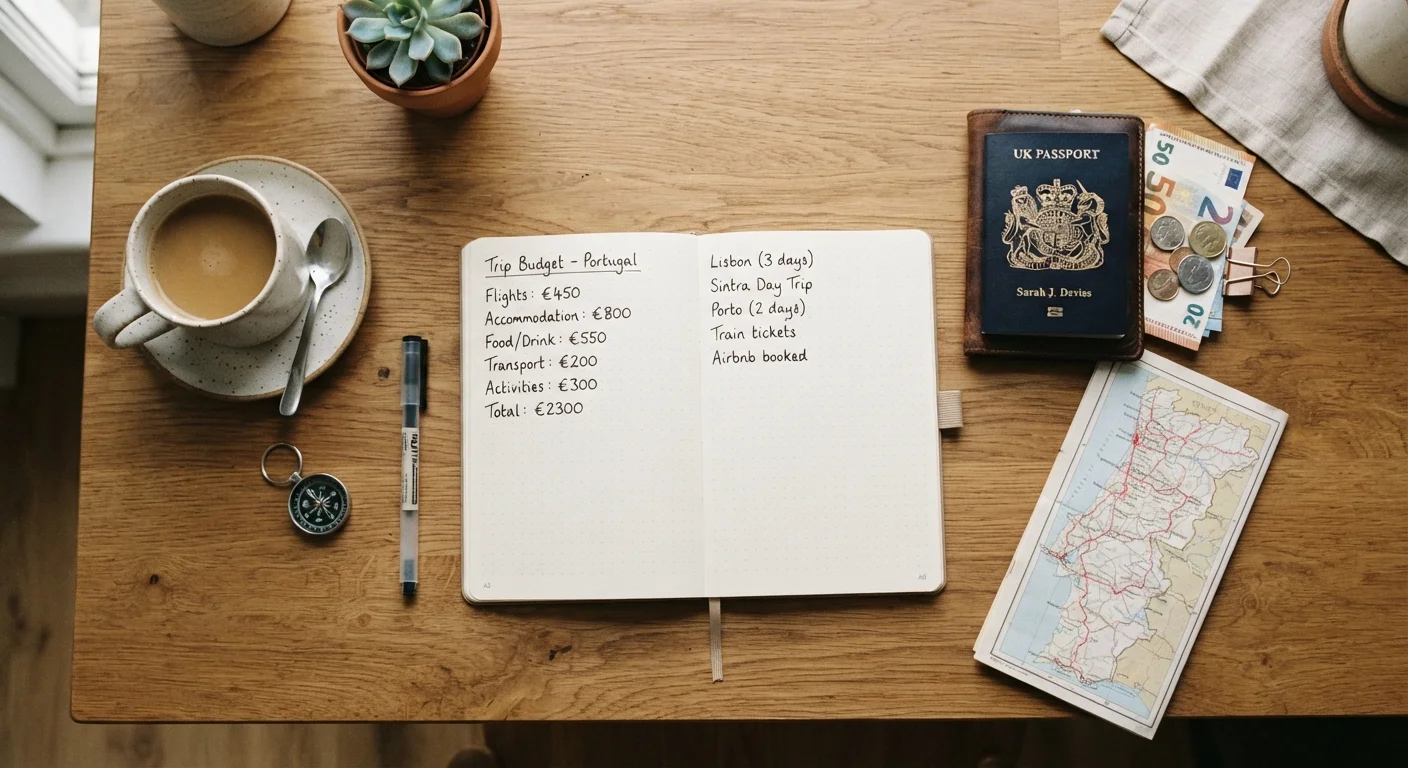 Trip Budget - Portugal
Flights: €450
Accommodation: €800
Food/Drink: €550
Transport: €200
Activities: €300
Total: €2300
Lisbon (3 days)
Sintra Day Trip
Porto (2 days)
Train tickets
Airbnb booked
UK PASSPORT
Sarah J. Davies
50
50
2
20